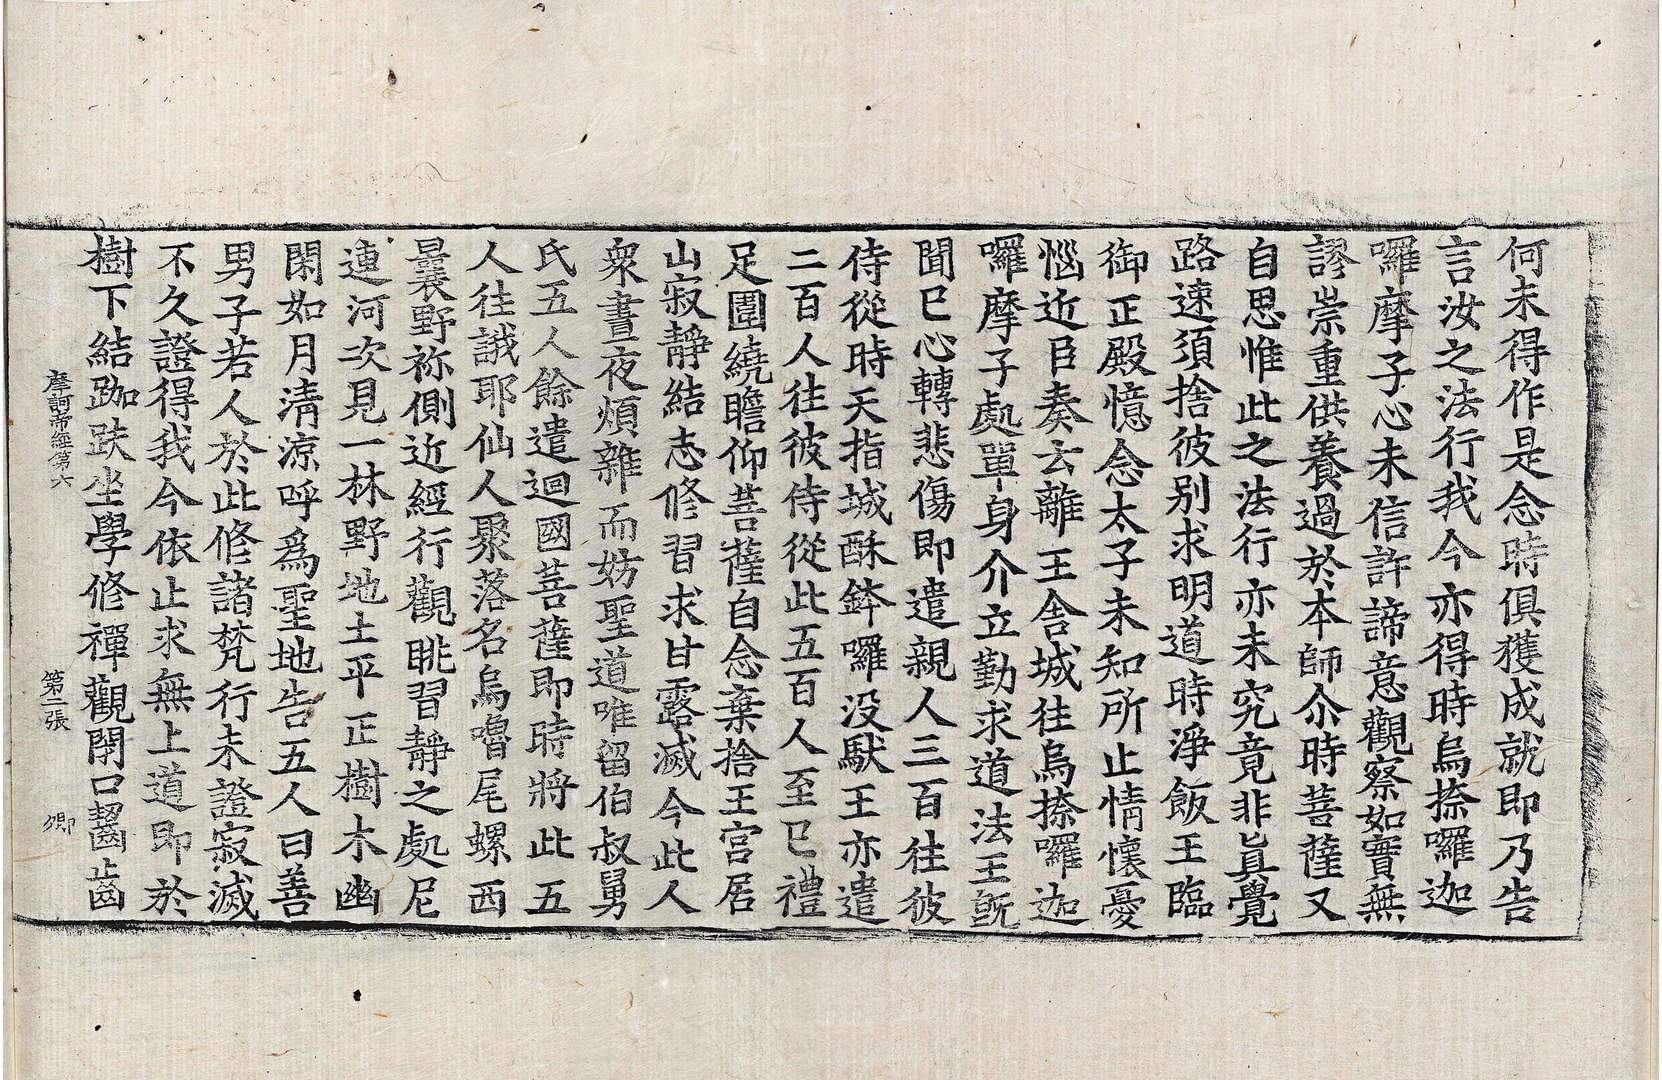 何未得作是念時俱獲成就即乃告
言汝之法行我今亦得時烏捺囉迦
囉摩子心未信許諦意觀察如實無
謬崇重供養過於本師尒時菩薩又
自思惟此之法行亦未究竟非真覺
路速須捨彼别求明道時淨飯王臨
御正殿憶念太子未知所止情懷憂
惱近臣奏云離王舍城往烏捺囉迦
囉摩子處單身介立勤求道法王旣
聞已心轉悲傷即遣親人三百往彼
侍從時天指城酥鉢囉没馱王亦遣
二百人往彼侍從此五百人至已禮
足圍繞瞻仰菩薩自念棄捨王宫居
山寂靜結志修習求甘露滅今此人
衆晝夜煩雜而妨聖道唯留伯叔舅
氏五人餘遣迴國菩薩即時將此五
人往誐耶仙人聚落名烏嚕尾螺西
曩野祢側近經行觀眺習靜之處尼
連河次見一林野地土平正樹木幽
閑如月清凉呼爲聖地告五人曰善
男子若人於此修諸梵行未證寂滅
不久證得我今依止求無上道即於
樹下結跏趺坐學修禪觀閇口齧齒
摩訶帝經第六 第二張 卿